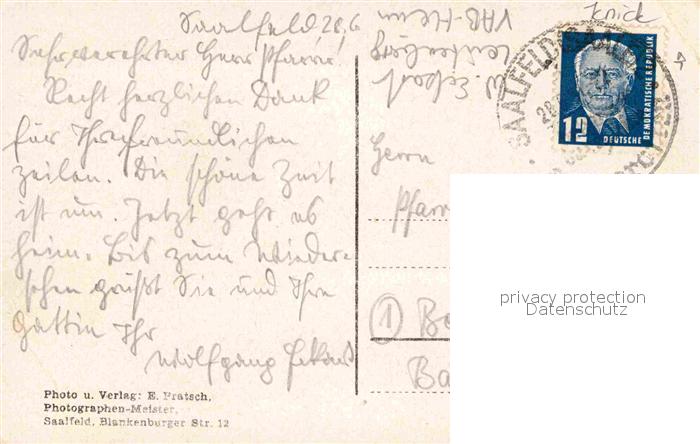 Saalfeld 28.6
Sehr verehrter Herr Pfarrer!
Recht herzlichen Dank
für Ihre freundlichen
Zeilen. Die schöne Zeit
ist um. Jetzt geht es
heim. Bis zum Wieder-
sehen grüßt Sie und Ihre
Gattin Ihr
Wolfgang
Photo u. Verlag: E. Pratsch,
Photographen-Meister,
Saalfeld, Blankenburger Str. 12
knick
W.
Leutenberg
VAB-Heim
SAALFELD (SAALE)
28.
12
DEUTSCHE
DEMOKRATISCHE REPUBLIK
Herrn
Pfarr
1 Be
Ba
privacy protection
Datenschutz